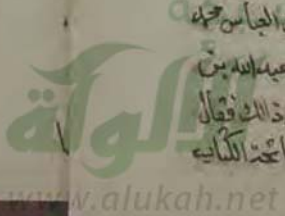 العباس محمد
عبد الله بن
ذالك فقال
الكتاب
الألوكة
www.alukah.net